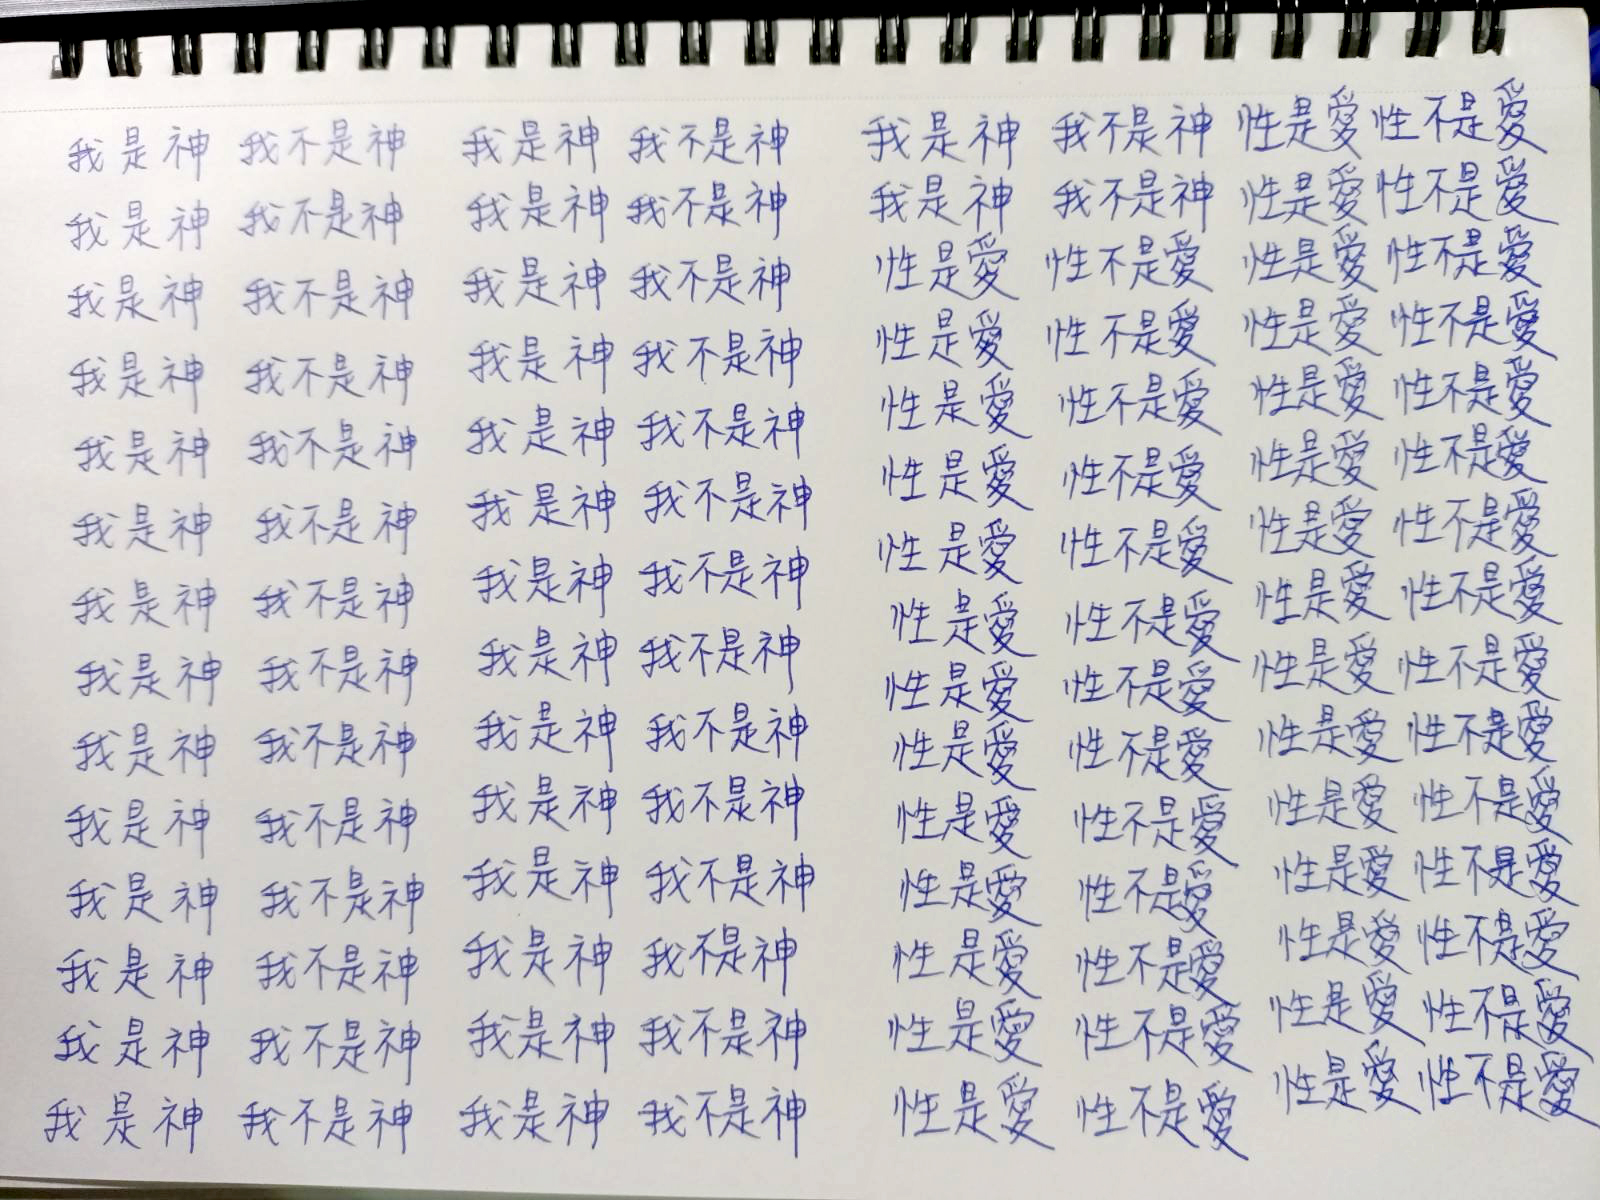 我是神 我不是神 我是神 我不是神 我是神 我不是神 性是愛 性不是愛
我是神 我不是神 我是神 我不是神 我是神 我不是神 性是愛 性不是愛
我是神 我不是神 我是神 我不是神 性是愛 性不是愛 性是愛 性不是愛
我是神 我不是神 我是神 我不是神 性是愛 性不是愛 性是愛 性不是愛
我是神 我不是神 我是神 我不是神 性是愛 性不是愛 性是愛 性不是愛
我是神 我不是神 我是神 我不是神 性是愛 性不是愛 性是愛 性不是愛
我是神 我不是神 我是神 我不是神 性是愛 性不是愛 性是愛 性不是愛
我是神 我不是神 我是神 我不是神 性是愛 性不是愛 性是愛 性不是愛
我是神 我不是神 我是神 我不是神 性是愛 性不是愛 性是愛 性不是愛
我是神 我不是神 我是神 我不是神 性是愛 性不是愛 性是愛 性不是愛
我是神 我不是神 我是神 我不是神 性是愛 性不是愛 性是愛 性不是愛
我是神 我不是神 我是神 我不是神 性是愛 性不是愛 性是愛 性不是愛
我是神 我不是神 我是神 我不是神 性是愛 性不是愛 性是愛 性不是愛
我是神 我不是神 我是神 我不是神 性是愛 性不是愛 性是愛 性不是愛
性是愛 性不是愛 性是愛 性不是愛